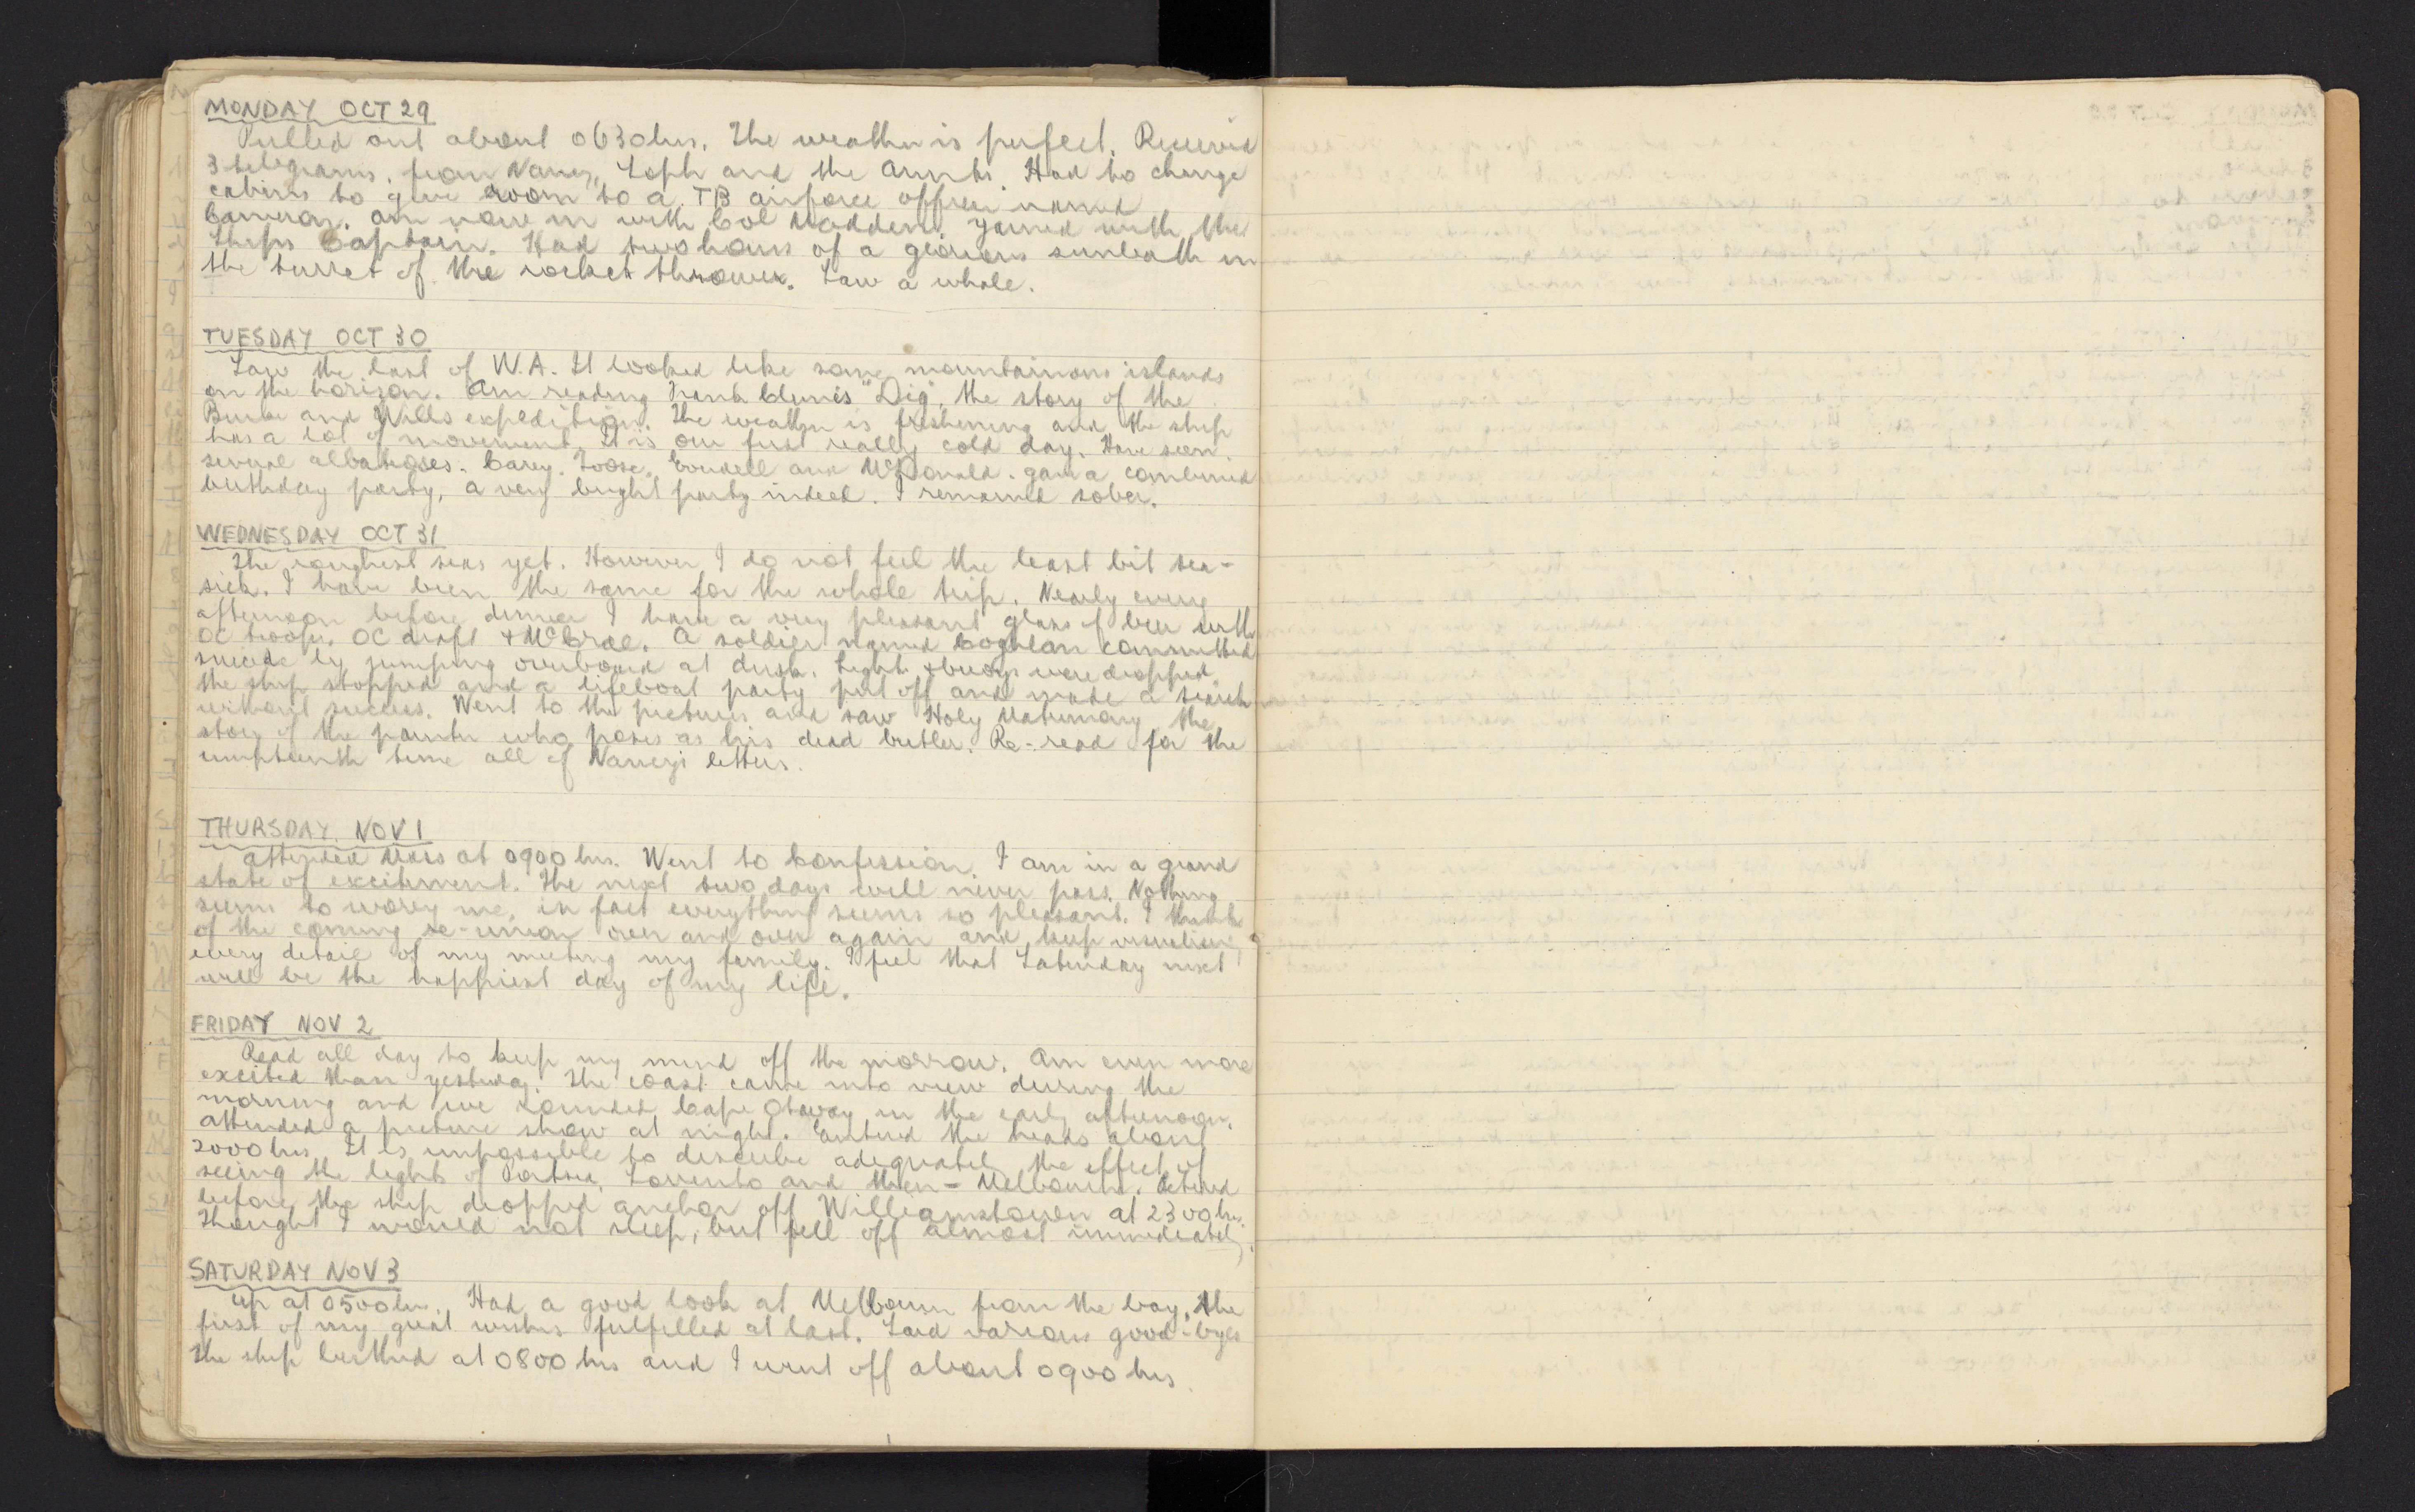 MONDAY OCT 29
Pulled out about 0630 hrs. The weather is perfect. Received
3 telegrams, from Nancy, Soph and the Aunts. Had to change
cabins to give room to a TB airforce officer named
Cameron. Am now in with Col Madden. Yarned with the
Ships Captain. Had two hours of a glorious sunbath in
the turret of the rocket thrower. Saw a whale.
TUESDAY OCT 30
Saw the last of W.A. It looked like some mountainous islands
on the horizon. Am reading Frank Clunes "Dig", the story of the
Burke and Wills expedition. The weather is freshening and the ship
has a lot of movement. It is our first really cold day. Have seen
several albatrosses. Carey, Toose, and McDonald gave a combined
birthday party, a very bright party indeed. I remained sober.
WEDNESDAY OCT 31
The roughest seas yet. However I do not feel the least bit sea-
sick. I have been the same for the whole trip. Nearly every
afternoon before dinner I have a very pleasant glass of beer with
OC troops, OC draft & McCrae. A soldier named Coghlan committed
suicide by jumping overboard at dusk. Lights & buoys were dropped,
the ship stopped and a lifeboat party put off and made a search
without success. Went to the pictures and saw Holy Matrimony the
story of the painter who poses as his dead butler. Re-read for the
umpteenth time all of Nancy's letters.
THURSDAY NOV 1
Attended Mass at 0900 hrs. Went to Confession. I am in a grand
state of excitement. The next two days will never pass. Nothing
seems to worry me, in fact everything seems so pleasant. I think
of the coming re-union over and over again and keep visualising
every detail of my meeting my family. I feel that Saturday next
will be the happiest day of my life.
FRIDAY NOV 2
Read all day to keep my mind off the morrow. Am even more
excited than yesterday. The coast came into view during the
morning and we rounded Cape Otway in the early afternoon.
Attended a picture show at night. Entered the heads about
2000 hrs. It is impossible to describe adequately the effect of
seeing the lights of Portsea, Sorrento and then - Melbourne. Retired
before the ship dropped anchor off Williamstown at 2300 hrs.
Thought I would not sleep, but fell off almost immediately.
SATURDAY NOV 3
Up at 0500 hrs. Had a good look at Melbourn from the bay, the
first of my great wishes fulfilled at last. Said various good-byes
The ship berthed at 0800 hrs and I went off about 0900 hrs.